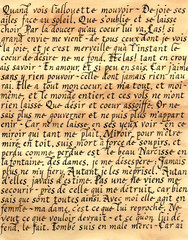 Quand vois l'allouette mouvoir - De joie ses
ailes face au soleil, Que s'oublie et se laisse
choir Par la douceur qu'au coeur lui va, Las! si
grand envie me vient - de tous ceux dont je vois
la joie, et c'est merveille qu'à l'instant le
coeur de désire ne me fond. Hélas! tant en croy
ais savoir - En amour, et si peu en sais. Car j'aime
sans y rien pouvoir - celle dont jamais rien n'au
rai. Elle a tout mon coeur, et m'a tout, et moi-
même, et le monde entier, et ces vols ne m'ont
rien laissé - Que désir et coeur assoiffé. Or ne
sais plus me gouverner et ne puis plus m'apparte
nir - Car ne me laisse en ses yeux voir - En ce
miroir qui tant me plaît. Miroir, pour m'être
miré en toi, suis mort à force de soupirs, et
perdu comme perdu s'est - le beau Narcisse en
la fontaine. des dames, je me désespère; Jamais
plus ne m'y fierai, Autant je les
Autant les Pas une ne vient me
secourir - près de celle qui me détruit, car bien
sais que sont toutes ainsi. Avec moi elle agit
en femme - ma dame, c'est ce que lui reproche, Ne
veut ce que vouloir devrait - et ce qu'on lui dé
fend, le fait. Tombé suis en male merci - Car ai